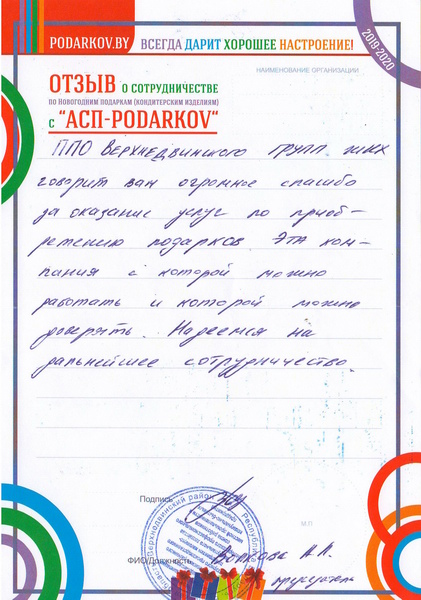 PODARKOV.BY
ВСЕГДА ДАРИТ ХОРОШЕЕ НАСТРОЕНИЕ!
2019-2020
НАИМЕНОВАНИЕ ОРГАНИЗАЦИИ
ОТЗЫВ О СОТРУДНИЧЕСТВЕ
ПО НОВОГОДНИМ ПОДАРКАМ (КОНДИТЕРСКИМ ИЗДЕЛИЯМ)
С "АСП-PODARKOV"
ППО Верхнедвинского ГРУПП ЖКХ
говорит вам огромное спасибо
за оказание услуг по приоб-
ретению подарков. Эта ком-
пания с которой можно
работать и которой можно
доверять. Надеемся на
дальнейшее сотрудничество.
Подпись
М.П.
Верхнедвинский район
ФИО/Должность